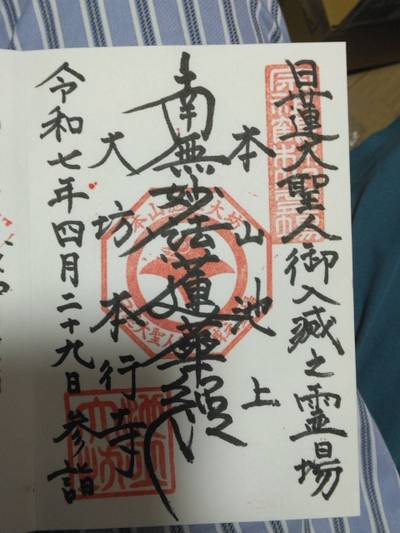 日蓮大聖人御入滅之霊場
本山池上
南無妙法蓮華経
大坊本行寺
令和七年四月二十九日参詣